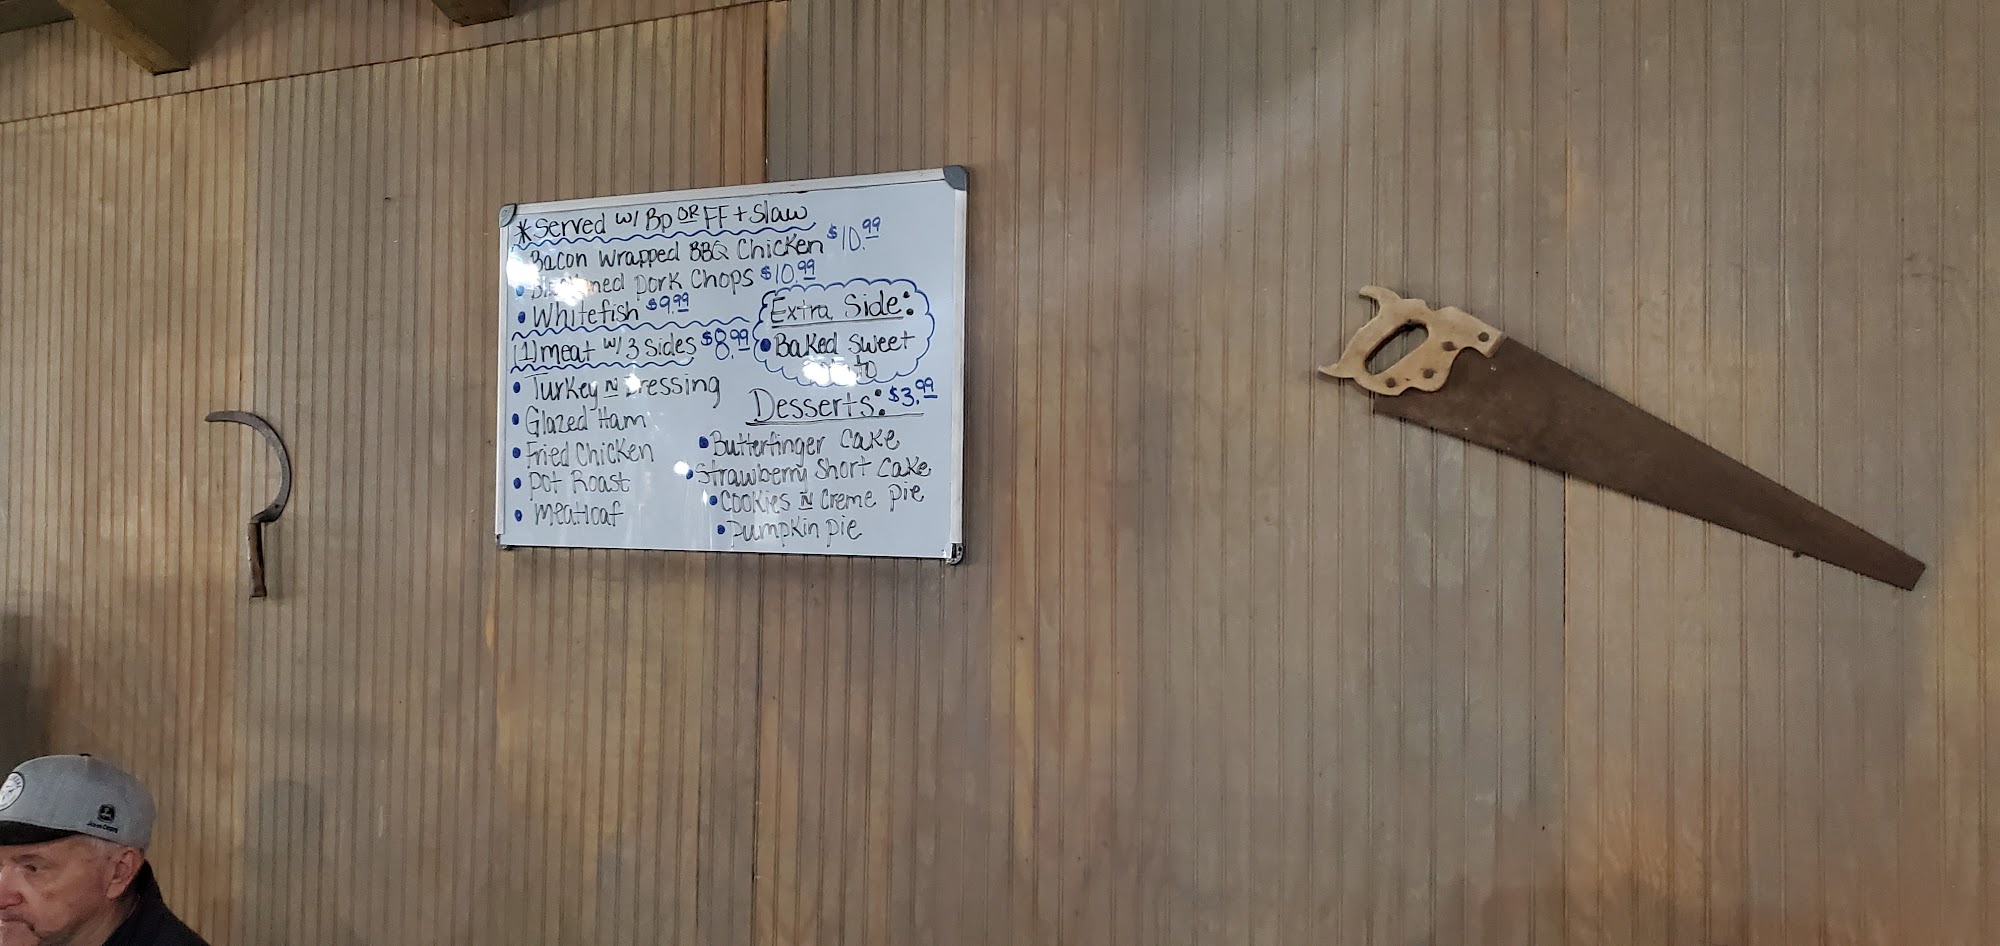 *Served w/ BP OR FF + Slaw
• Bacon Wrapped BBQ Chicken $10.99
• Pork Chops $10.99
• Whitefish $9.99
(1) meat w/ 3 sides $8.99
• Turkey N Dressing
• Glazed Ham
• Fried Chicken
• Pot Roast
• Meatloaf
Extra Side:
• Baked Sweet
Desserts: $3.99
• Butterfinger Cake
• Strawberry Short Cake
• Cookies N Creme Pie
• Pumpkin Pie
John Deere